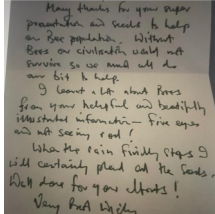 Many thanks for your super
presentation and seeds to help
our Bee population. Without
Bees our civilisation would not
survive so we must all do
our bit to help.
I learnt a lot about Bees
from your helpful and beautifully
illustrated information – five eyes
and not seeing red!
When the rain finally stops I
will certainly plant out the seeds.
Well done for your efforts!
Very Best Wishes